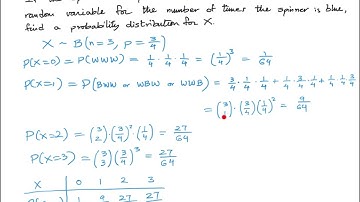 random variable for the number of times the spinner is blue,
find a probability distribution for X.
X ~ B(n = 3, p = 3/4)
P(X=0) = P(WWW) = 1/4 · 1/4 · 1/4 = (1/4)^3 = 1/64
P(X=1) = P(BWW or WBW or WWB) = 3/4 · 1/4 · 1/4 + 1/4 · 3/4 · 1/4 + 1/4 · 1/4 · 3/4
= (3 1) · (3/4) (1/4)^2 = 9/64
P(X=2) = (3 2) (3/4)^2 (1/4) = 27/64
P(X=3) = (3 3) (3/4)^3 = 27/64
X 0 1 2 3
1 9 27 27